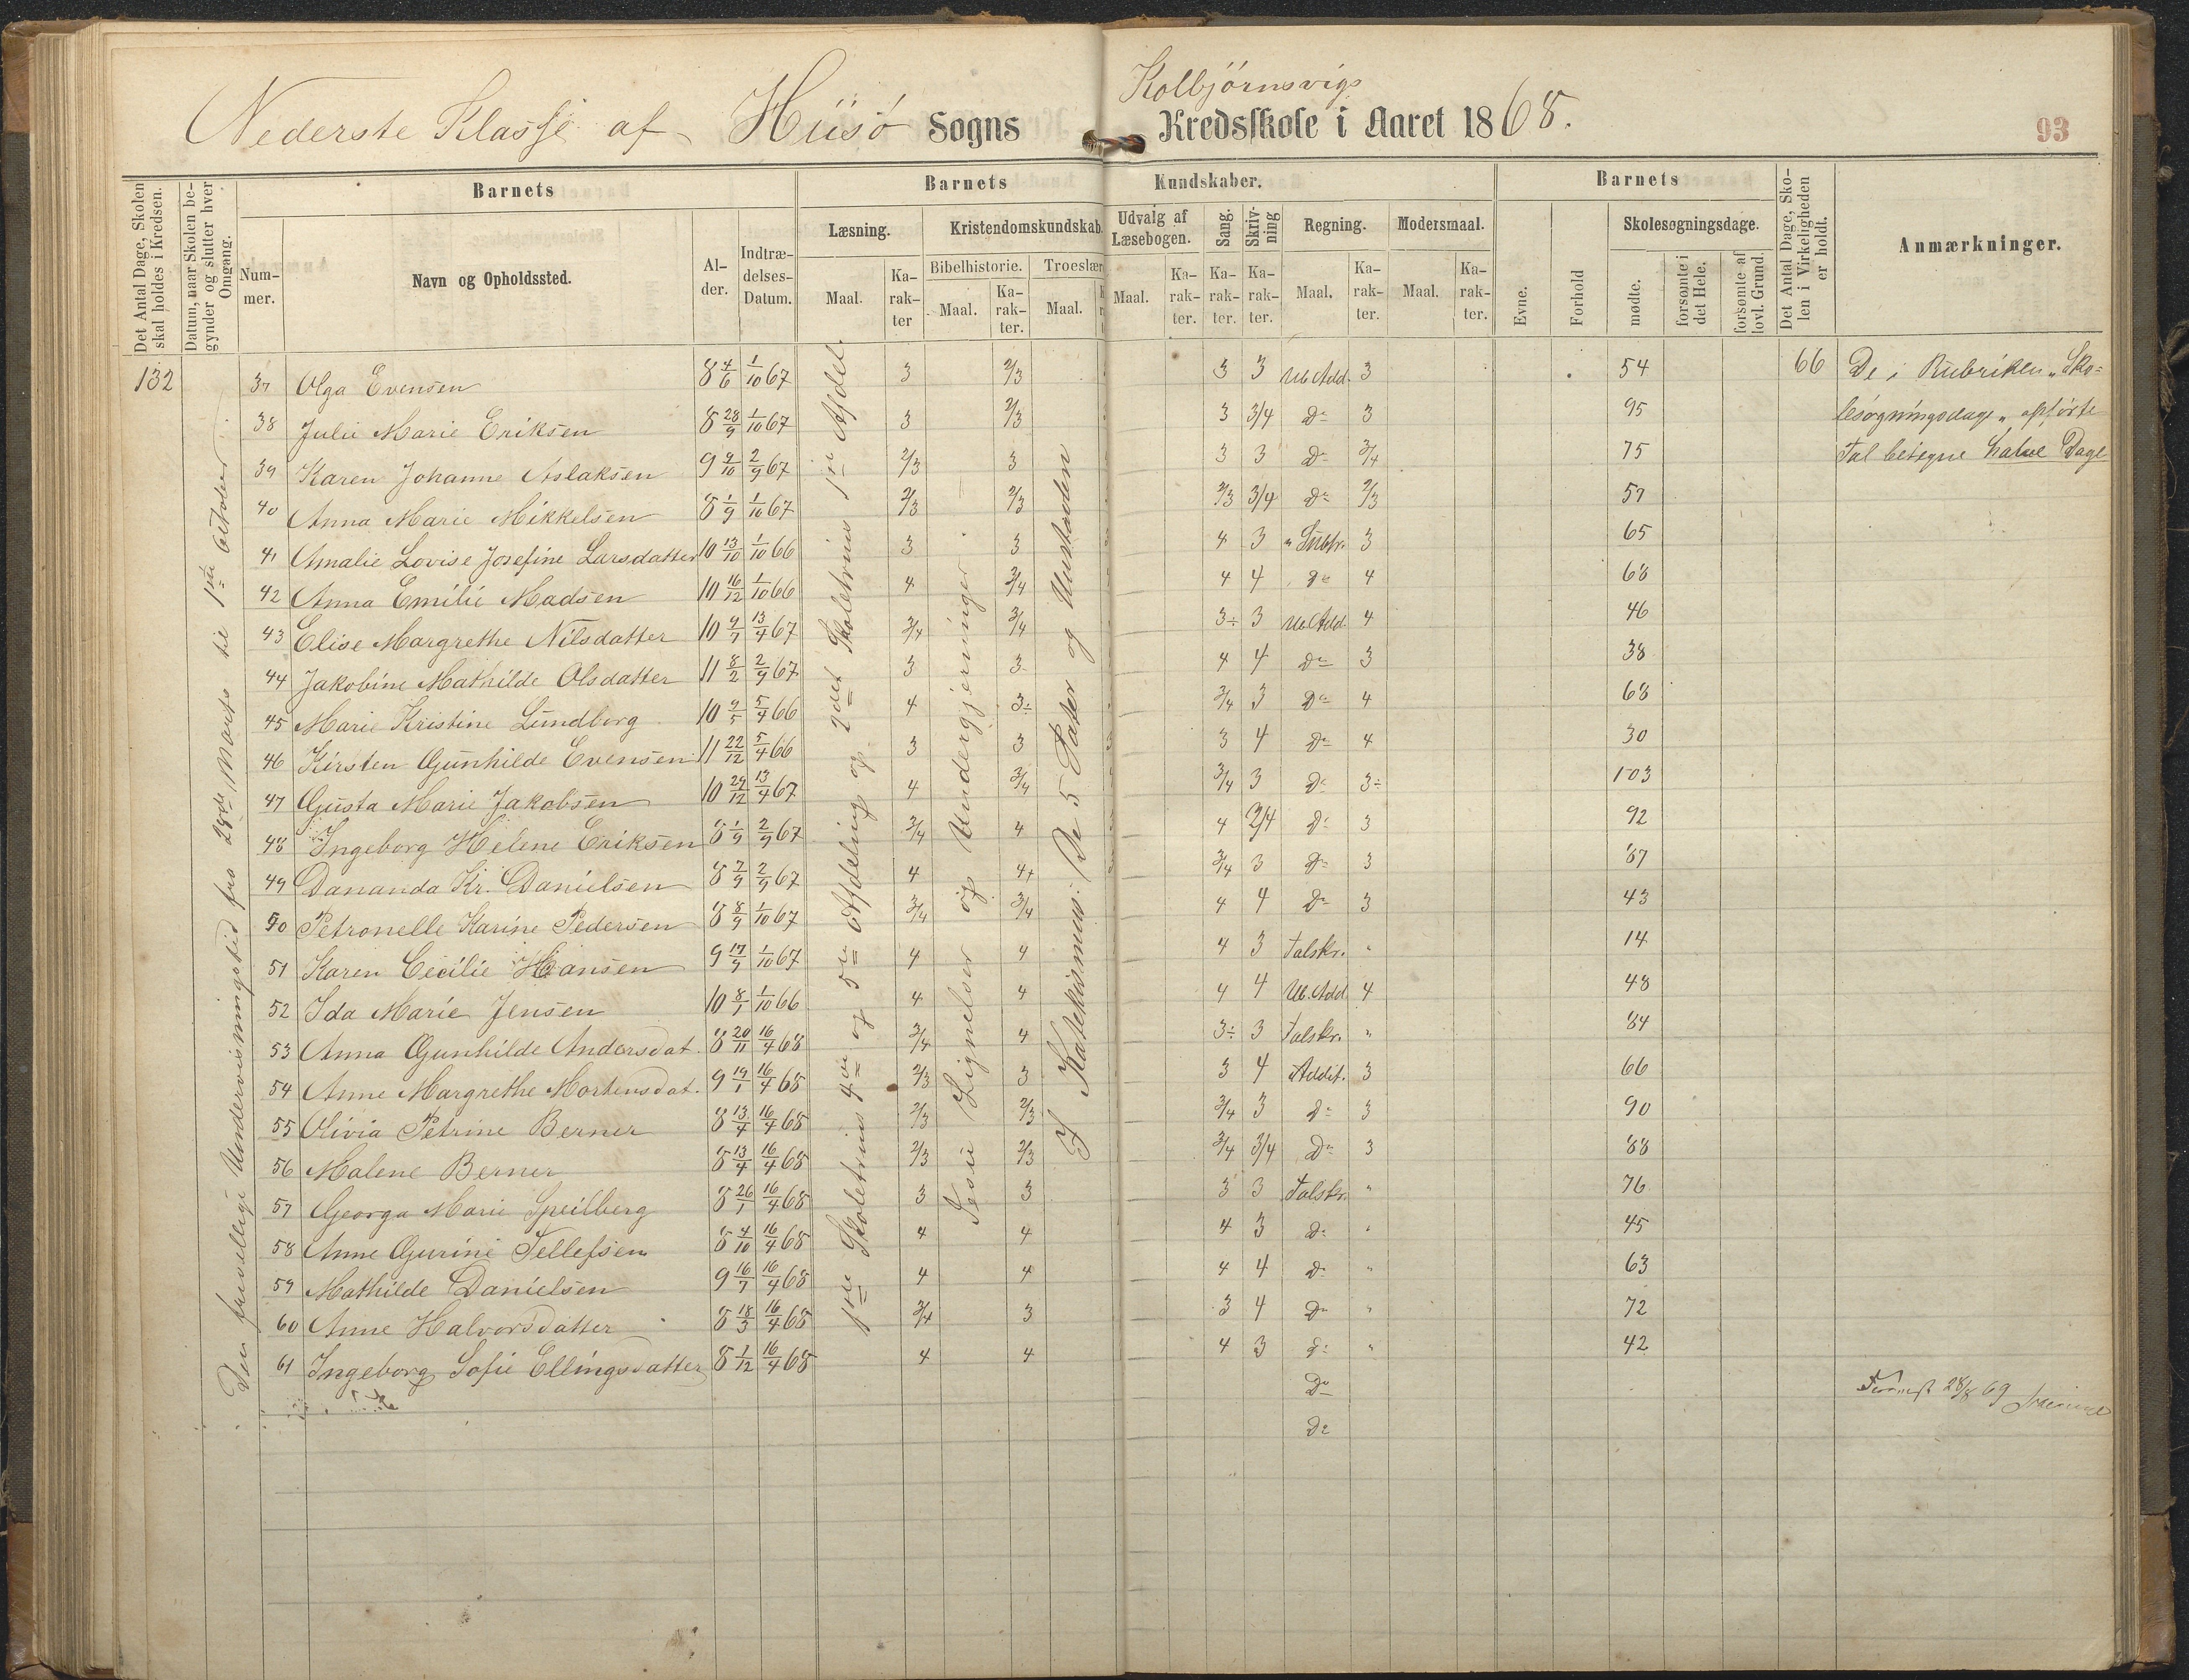 Kolbjörnsvigs
Nederste Klasse af Hisö Sogns Kredsskole i Aaret 1868.
93
Det Antal Dage, Skolen skal holdes i Kredsen.
Datum, naar Skolen begynder og slutter hver Omgang.
Barnets
Nummer.
Navn og Opholdssted.
Alder.
Indtrædelses-Datum.
Barnets Kundskaber.
Læsning.
Maal.
Karakter
Kristendomskundskab.
Bibelhistorie.
Maal.
Karakter.
Troeslær
Maal.
Udvalg af Læsebogen.
Maal.
Karakter.
Sang.
Karakter.
Skrivning
Karakter.
Regning.
Maal.
Karakter.
Modersmaal.
Maal.
Karakter.
Barnets
Evne.
Forhold
Skolesøgningsdage.
mødte.
forsømte i det Hele.
forsømte af lovl. Grund.
Det Antal Dage, Skolen i Virkeligheden er holdt.
Anmærkninger.
132
66
De i Rubriken "Sko=
lesøgningsdage" opførte
Tal betegne halve Dage
Den frivillige Undervisningstid fra 28de Marts til 1ste October
1ste Skoletrins 4de og 5te Afdeling og 2det Skoletrins 1ste Afdel.
Jesu Lignelser og Undergjerninger
I Katekismus: De 5 Parter og Hustavlen
37 Olga Evensen 8 4/6 1/10 67 3 2/3 3 3 Ub. Add. 3 54
38 Julie Marie Eriksen 8 28/9 1/10 67 3 2/3 3 3/4 Do 3 95
39 Karen Johanne Aslaksen 9 4/10 2/9 67 2/3 3 3 3 Do 3/4 75
40 Anna Marie Mikkelsen 8 1/9 1/10 67 2/3 2/3 2/3 3/4 Do 2/3 57
41 Amalie Lovise Josefine Larsdatter 10 13/10 1/10 66 3 3 4 3 " Subtr. 3 65
42 Anna Emilie Madsen 10 16/12 1/10 66 4 3/4 4 4 Do 4 68
43 Elise Margrethe Nilsdatter 10 4/7 13/4 67 3/4 3/4 3÷ 3 Ub. Add. 4 46
44 Jakobine Mathilde Olsdatter 11 8/2 2/9 67 3 3 4 4 Do 3 38
45 Marie Kristine Lundborg 10 2/5 5/4 66 4 3÷ 3/4 3 Do 4 68
46 Kirsten Gunhilde Evensen 11 22/12 5/4 66 3 3 3 4 Do 4 30
47 Gusta Marie Jakobsen 10 29/12 13/4 67 4 3/4 3/4 3 Do 3÷ 103
48 Ingeborg Helene Eriksen 8 1/9 2/9 67 3/4 4 4 3/4 Do 3 92
49 Dananda Kr. Danielsen 8 7/9 2/9 67 4 4+ 3/4 3 Do 3 87
50 Petronelle Karine Pedersen 8 8/9 1/10 67 3/4 3/4 4 4 Do 3 43
51 Karen Cecilie Hansen 9 17/9 1/10 67 4 4 4 3 Talskr. " 14
52 Ida Marie Jensen 10 8/1 1/10 66 4 4 4 4 Ub. Add 4 48
53 Anna Gunhilde Andersdat. 8 20/11 16/4 68 3/4 4 3÷ 3 Talskr. " 84
54 Anne Margrethe Mortensdat. 9 19/1 16/4 68 2/3 3 3 4 Addit. 3 66
55 Olivia Petrine Berner 8 13/4 16/4 68 2/3 2/3 3/4 3 Do 3 90
56 Malene Berner 8 13/4 16/4 68 2/3 2/3 3/4 3/4 Do 3 88
57 Georga Marie Speilberg 8 26/1 16/4 68 3 3 3 3 Talskr. " 76
58 Anne Gurine Tellefsen 8 4/10 16/4 68 4 4 4 3 Do " 45
59 Mathilde Danielsen 9 16/7 16/4 68 4 4 4 4 Do " 63
60 Anne Halvorsdatter 8 18/3 16/4 68 3/4 3 3 4 Do " 72
61 Ingeborg Sofie Ellingsdatter 8 1/12 16/4 68 4 4 4 3 Do " 42
Do
Do
28/8 69